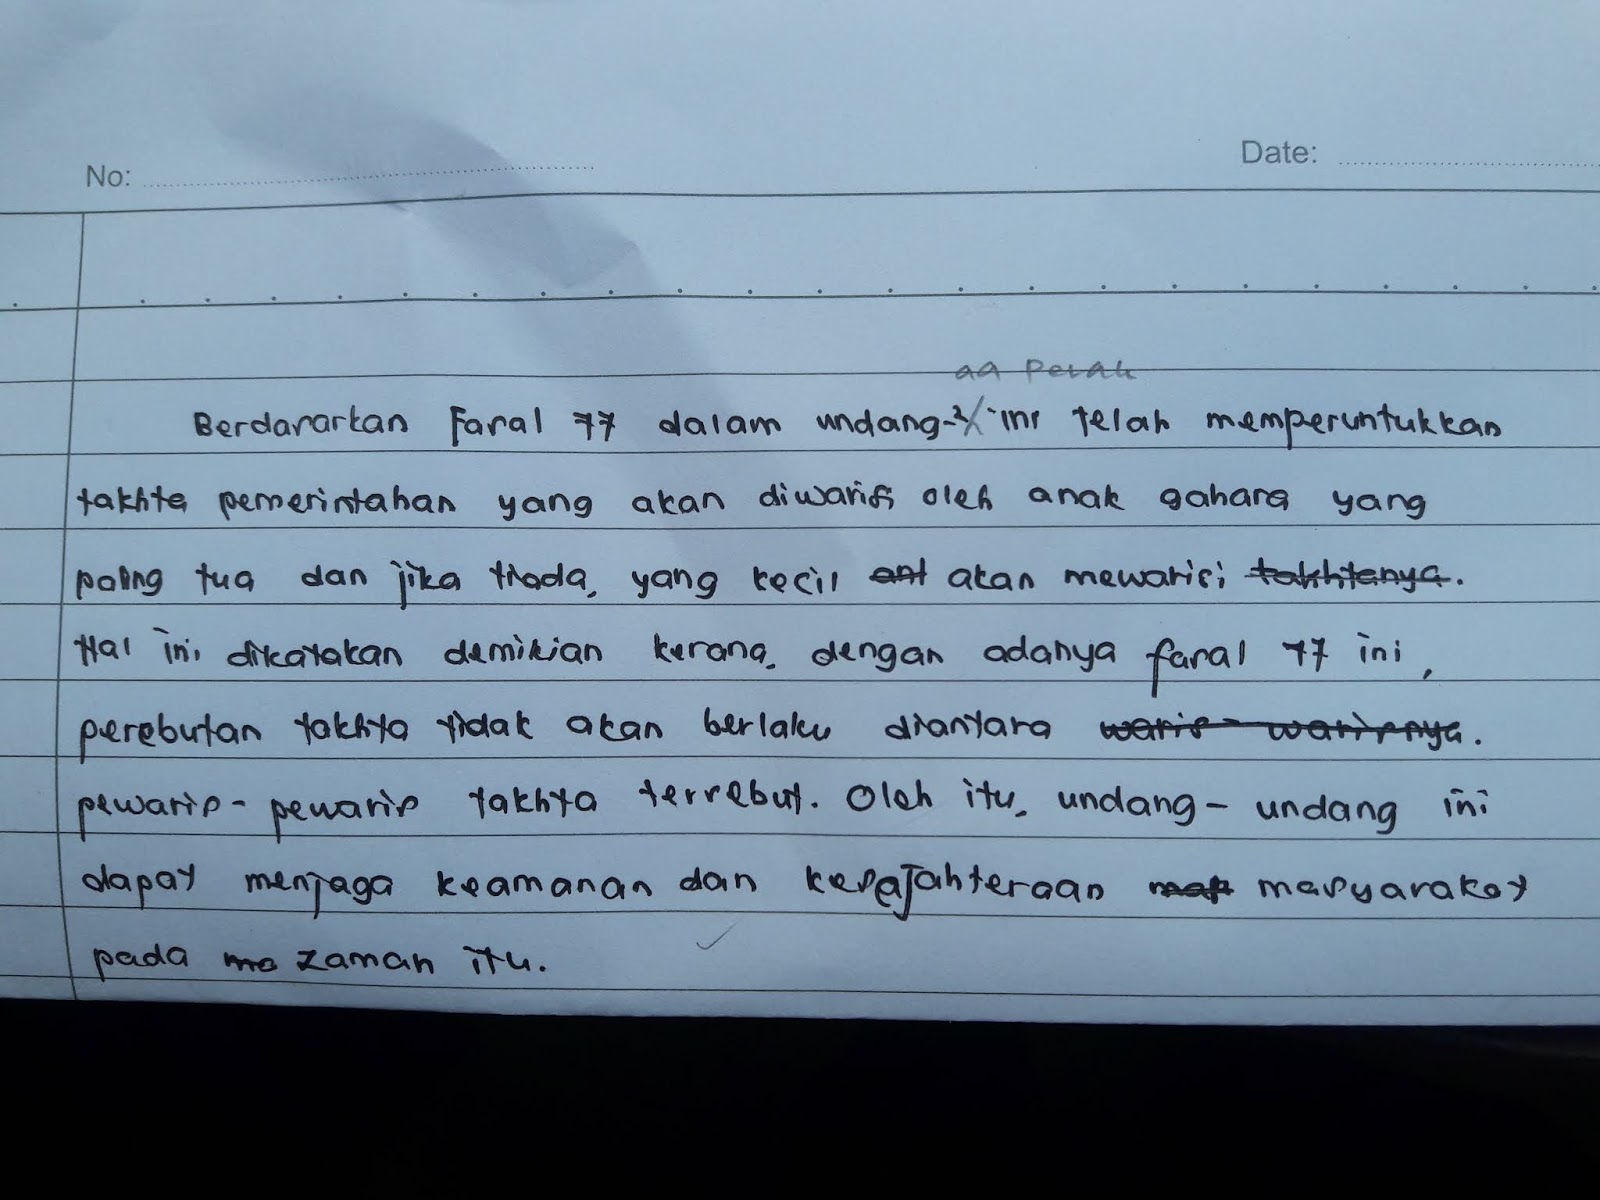 No:
Date:
99 Perak
Berdasarkan Fasal 77 dalam undang-2 ini telah memperuntukkan
takhta pemerintahan yang akan diwarisi oleh anak gahara yang
paling tua dan jika tiada, yang kecil ant akan mewarisi takhtanya.
Hal ini dikatakan demikian kerana, dengan adanya fasal 77 ini,
perebutan takhta tidak akan berlaku diantara waris-warisnya.
pewaris-pewaris takhta tersebut. Oleh itu, undang-undang ini
dapat menjaga keamanan dan kesejahteraan masyarakat
pada ma zaman itu.